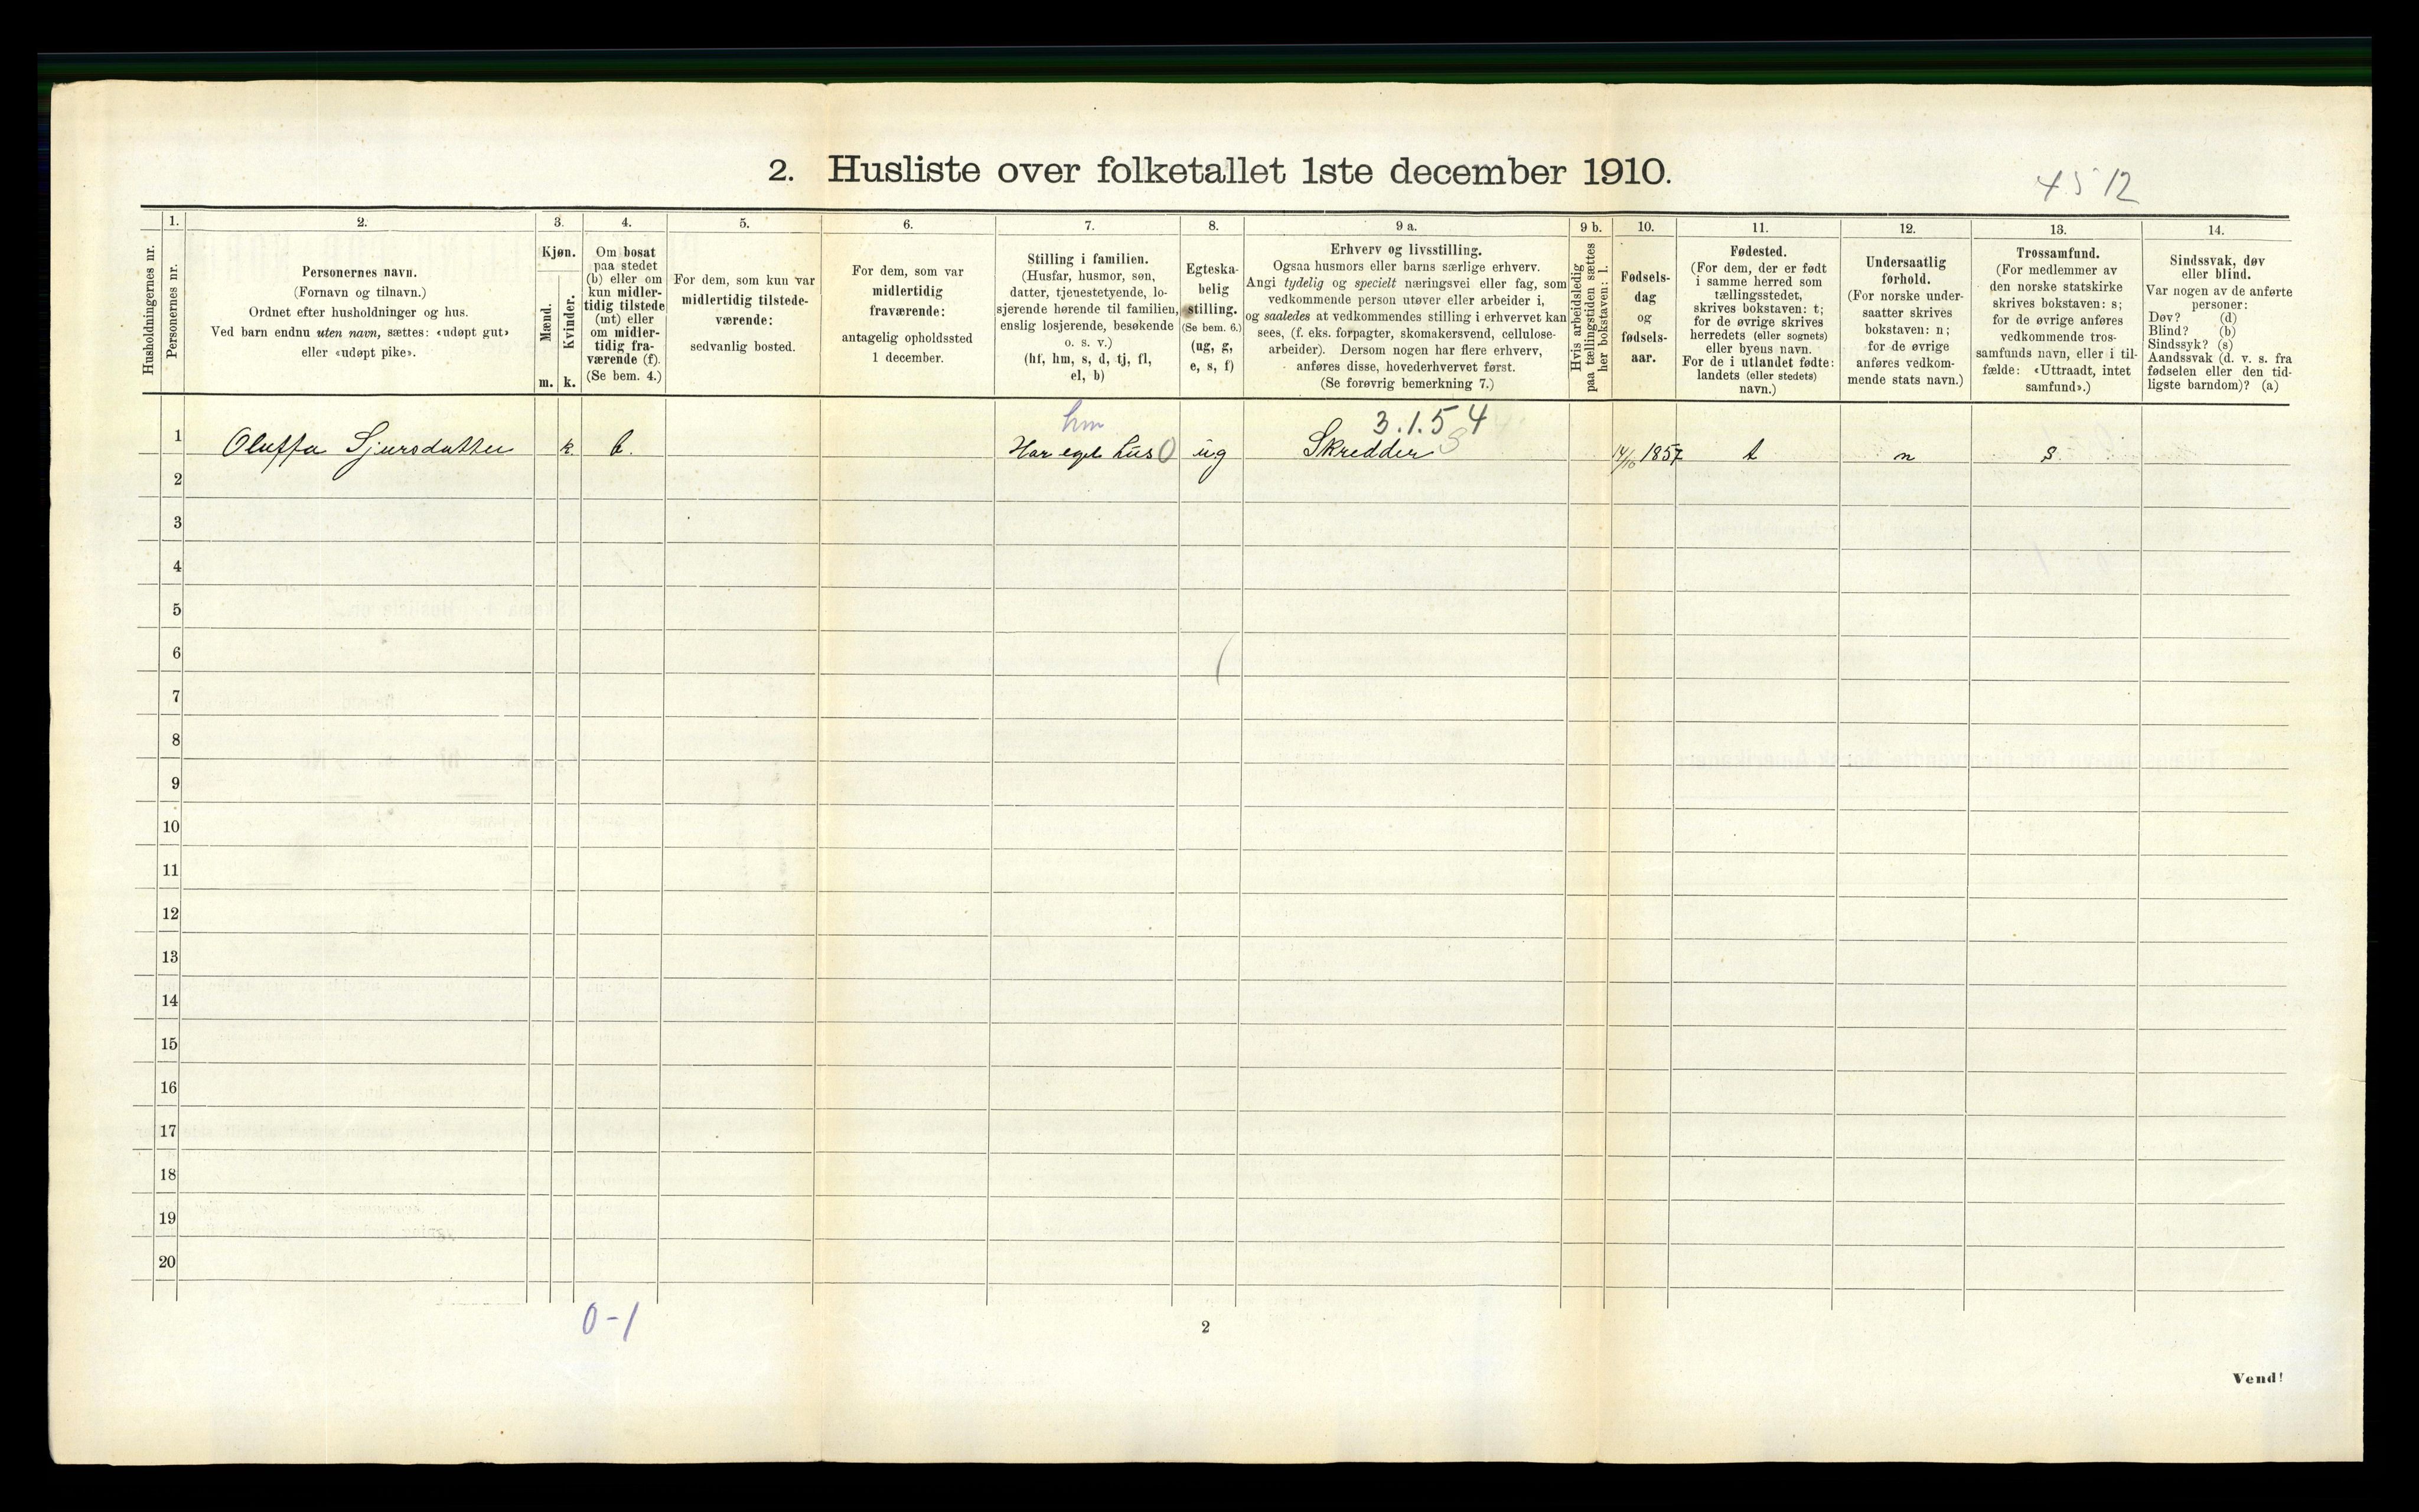 2. Husliste over folketallet 1ste december 1910.
4512
Husholdningernes nr.
1.
Personernes nr.
2.
Personernes navn.
(Fornavn og tilnavn.)
Ordnet efter husholdninger og hus.
Ved barn endnu uten navn, sættes: «udøpt gut»
eller «udøpt pike».
3.
Kjøn.
Mænd.
m.
Kvinder.
k.
4.
Om bosat
paa stedet
(b) eller om
kun midler-
tidig tilstede
(mt) eller
om midler-
tidig fra-
værende (f).
(Se bem. 4.)
5.
For dem, som kun var
midlertidig tilstede-
værende:
sedvanlig bosted.
6.
For dem, som var
midlertidig
fraværende:
antagelig opholdssted
1 december.
7.
Stilling i familien.
(Husfar, husmor, søn,
datter, tjenestetyende, lo-
sjerende hørende til familien,
enslig losjerende, besøkende
o. s. v.)
(hf, hm, s, d, tj, fl,
el, b)
8.
Egteska-
belig
stilling.
(Se bem. 6.)
(ug, g,
e, s, f)
9 a.
Erhverv og livsstilling.
Ogsaa husmors eller barns særlige erhverv.
Angi tydelig og specielt næringsvei eller fag, som
vedkommende person utøver eller arbeider i,
og saaledes at vedkommendes stilling i erhvervet kan
sees, (f. eks. forpagter, skomakersvend, cellulose-
arbeider). Dersom nogen har flere erhverv,
anføres disse, hovederhvervet først.
(Se forøvrig bemerkning 7.)
9 b.
Hvis arbeidsledig
paa tællingstiden sættes
her bokstaven: l.
10.
Fødsels-
dag
og
fødsels-
aar.
11.
Fødested.
(For dem, der er født
i samme herred som
tællingsstedet,
skrives bokstaven: t;
for de øvrige skrives
herredets (eller sognets)
eller byens navn.
For de i utlandet fødte:
landets (eller stedets)
navn.)
12.
Undersaatlig
forhold.
(For norske under-
saatter skrives
bokstaven: n;
for de øvrige
anføres vedkom-
mende stats navn.)
13.
Trossamfund.
(For medlemmer av
den norske statskirke
skrives bokstaven: s;
for de øvrige anføres
vedkommende tros-
samfunds navn, eller i til-
fælde: «Uttraadt, intet
samfund».)
14.
Sindssvak, døv
eller blind.
Var nogen av de anførte
personer:
Døv? (d)
Blind? (b)
Sindssyk? (s)
Aandssvak (d. v. s. fra
fødselen eller den tid-
ligste barndom)? (a)
hm 3.1.54
1 Oluffa Sjursdatter k. b. Har eget hus 0 ug Skredder S 14/10 1857 t n s.
2
3
4
5
6
7
8
9
10
11
12
13
14
15
16
17
18
19
20
0-1
2
Vend!